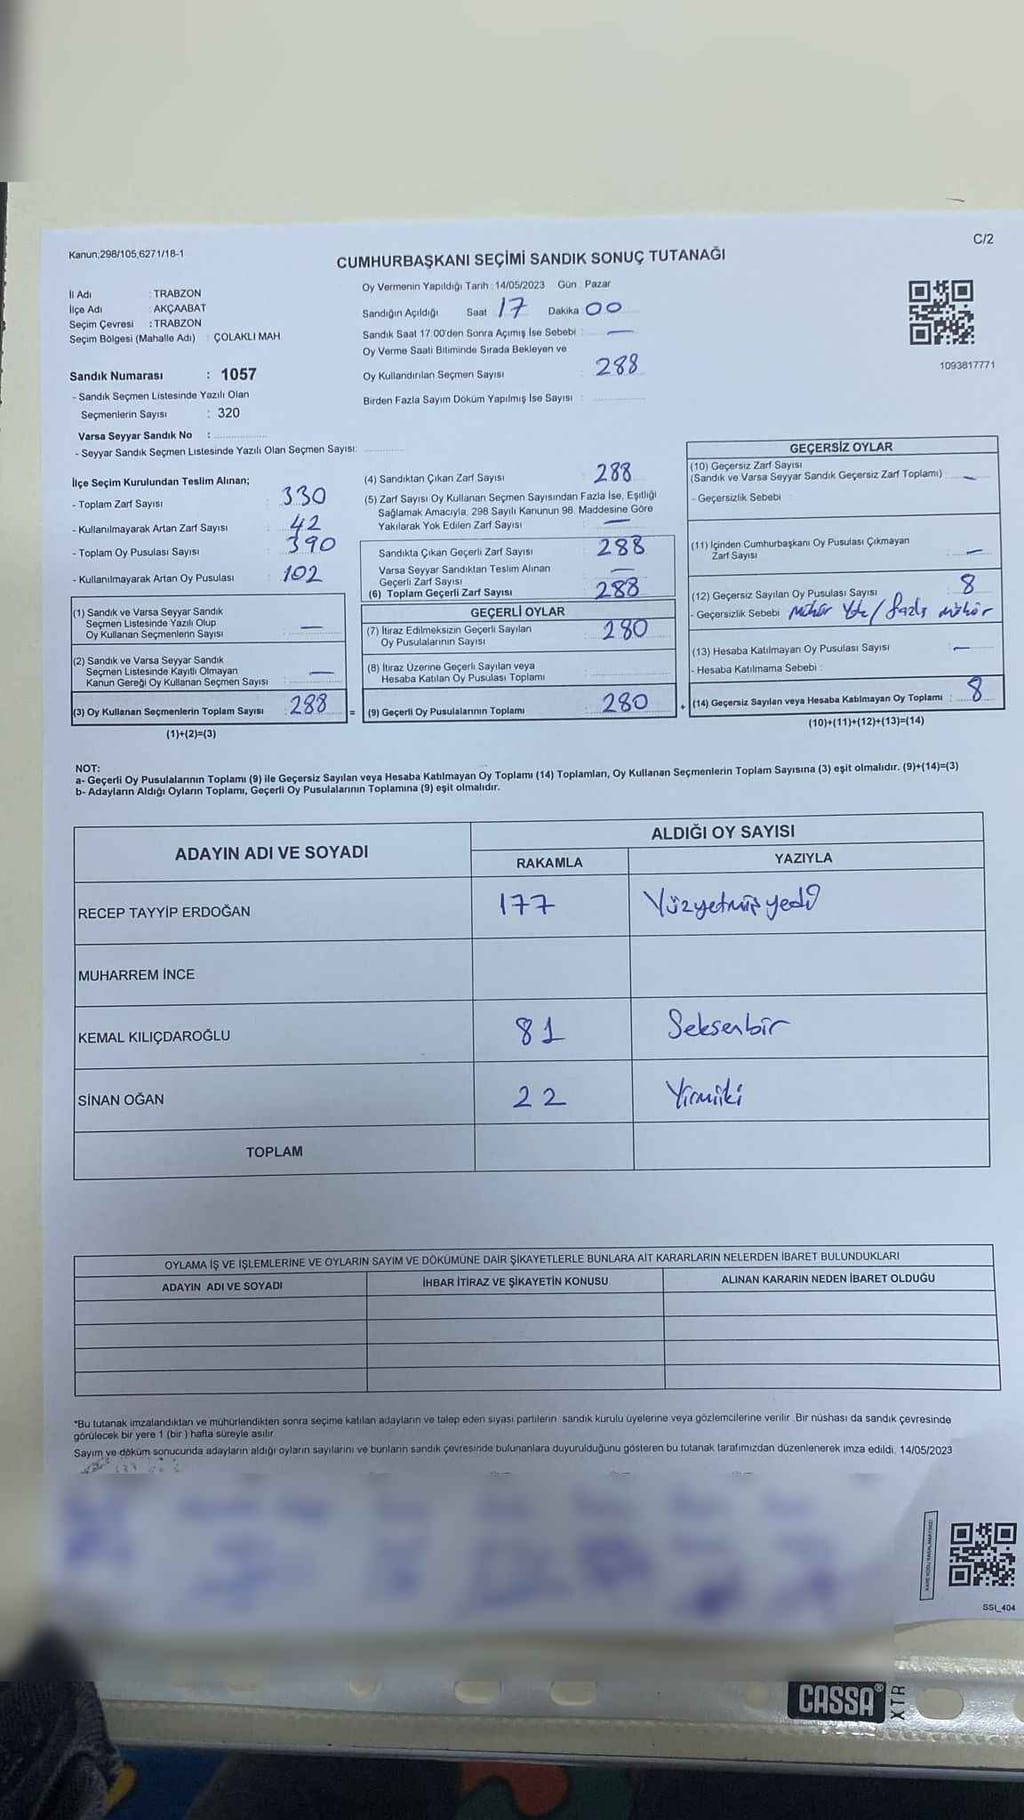 Kanun;298/105,6271/18-1
C/2
CUMHURBAŞKANI SEÇİMİ SANDIK SONUÇ TUTANAĞI
İl Adı : TRABZON
İlçe Adı : AKÇAABAT
Seçim Çevresi : TRABZON
Seçim Bölgesi (Mahalle Adı) : ÇOLAKLI MAH.
Sandık Numarası : 1057
- Sandık Seçmen Listesinde Yazılı Olan
Seçmenlerin Sayısı : 320
Varsa Seyyar Sandık No :
- Seyyar Sandık Seçmen Listesinde Yazılı Olan Seçmen Sayısı:
Oy Vermenin Yapıldığı Tarih : 14/05/2023 Gün : Pazar
Sandığın Açıldığı Saat 17 Dakika 00
Sandık Saat 17:00'den Sonra Açımış İse Sebebi : —
Oy Verme Saati Bitiminde Sırada Bekleyen ve
Oy Kullandırılan Seçmen Sayısı : 288
Birden Fazla Sayım Döküm Yapılmış İse Sayısı :
1093817771
İlçe Seçim Kurulundan Teslim Alınan;
- Toplam Zarf Sayısı : 330
- Kullanılmayarak Artan Zarf Sayısı : 42
- Toplam Oy Pusulası Sayısı : 390
- Kullanılmayarak Artan Oy Pusulası : 102
(1) Sandık ve Varsa Seyyar Sandık
Seçmen Listesinde Yazılı Olup
Oy Kullanan Seçmenlerin Sayısı : —
(2) Sandık ve Varsa Seyyar Sandık
Seçmen Listesinde Kayıtlı Olmayan
Kanun Gereği Oy Kullanan Seçmen Sayısı : —
(3) Oy Kullanan Seçmenlerin Toplam Sayısı : 288
(1)+(2)=(3)
=
(4) Sandıktan Çıkan Zarf Sayısı : 288
(5) Zarf Sayısı Oy Kullanan Seçmen Sayısından Fazla İse, Eşitliği
Sağlamak Amacıyla, 298 Sayılı Kanunun 98. Maddesine Göre
Yakılarak Yok Edilen Zarf Sayısı : —
Sandıkta Çıkan Geçerli Zarf Sayısı : 288
Varsa Seyyar Sandıktan Teslim Alınan
Geçerli Zarf Sayısı : —
(6) Toplam Geçerli Zarf Sayısı : 288
GEÇERLİ OYLAR
(7) İtiraz Edilmeksizin Geçerli Sayılan
Oy Pusulalarının Sayısı : 280
(8) İtiraz Üzerine Geçerli Sayılan veya
Hesaba Katılan Oy Pusulası Toplamı :
(9) Geçerli Oy Pusulalarının Toplamı : 280
+
GEÇERSİZ OYLAR
(10) Geçersiz Zarf Sayısı
(Sandık ve Varsa Seyyar Sandık Geçersiz Zarf Toplamı) : —
- Geçersizlik Sebebi :
(11) İçinden Cumhurbaşkanı Oy Pusulası Çıkmayan
Zarf Sayısı : —
(12) Geçersiz Sayılan Oy Pusulası Sayısı : 8
- Geçersizlik Sebebi : Mühür Yok / fazla mühür
(13) Hesaba Katılmayan Oy Pusulası Sayısı : —
- Hesaba Katılmama Sebebi :
(14) Geçersiz Sayılan veya Hesaba Katılmayan Oy Toplamı : 8
(10)+(11)+(12)+(13)=(14)
NOT:
a- Geçerli Oy Pusulalarının Toplamı (9) ile Geçersiz Sayılan veya Hesaba Katılmayan Oy Toplamı (14) Toplamları, Oy Kullanan Seçmenlerin Toplam Sayısına (3) eşit olmalıdır. (9)+(14)=(3)
b- Adayların Aldığı Oyların Toplamı, Geçerli Oy Pusulalarının Toplamına (9) eşit olmalıdır.
ADAYIN ADI VE SOYADI
ALDIĞI OY SAYISI
RAKAMLA YAZIYLA
RECEP TAYYİP ERDOĞAN 177 Yüzyetmişyedi
MUHARREM İNCE
KEMAL KILIÇDAROĞLU 81 Seksenbir
SİNAN OĞAN 22 Yirmiiki
TOPLAM
OYLAMA İŞ VE İŞLEMLERİNE VE OYLARIN SAYIM VE DÖKÜMÜNE DAİR ŞİKAYETLERLE BUNLARA AİT KARARLARIN NELERDEN İBARET BULUNDUKLARI
ADAYIN ADI VE SOYADI İHBAR İTİRAZ VE ŞİKAYETİN KONUSU ALINAN KARARIN NEDEN İBARET OLDUĞU
*Bu tutanak imzalandıktan ve mühürlendikten sonra seçime katılan adayların ve talep eden siyasi partilerin sandık kurulu üyelerine veya gözlemcilerine verilir. Bir nüshası da sandık çevresinde
görülecek bir yere 1 (bir) hafta süreyle asılır.
Sayım ve döküm sonucunda adayların aldığı oyların sayılarını ve bunların sandık çevresinde bulunanlara duyurulduğunu gösteren bu tutanak tarafımızdan düzenlenerek imza edildi. 14/05/2023
SSI_404
CASSA®
XTR